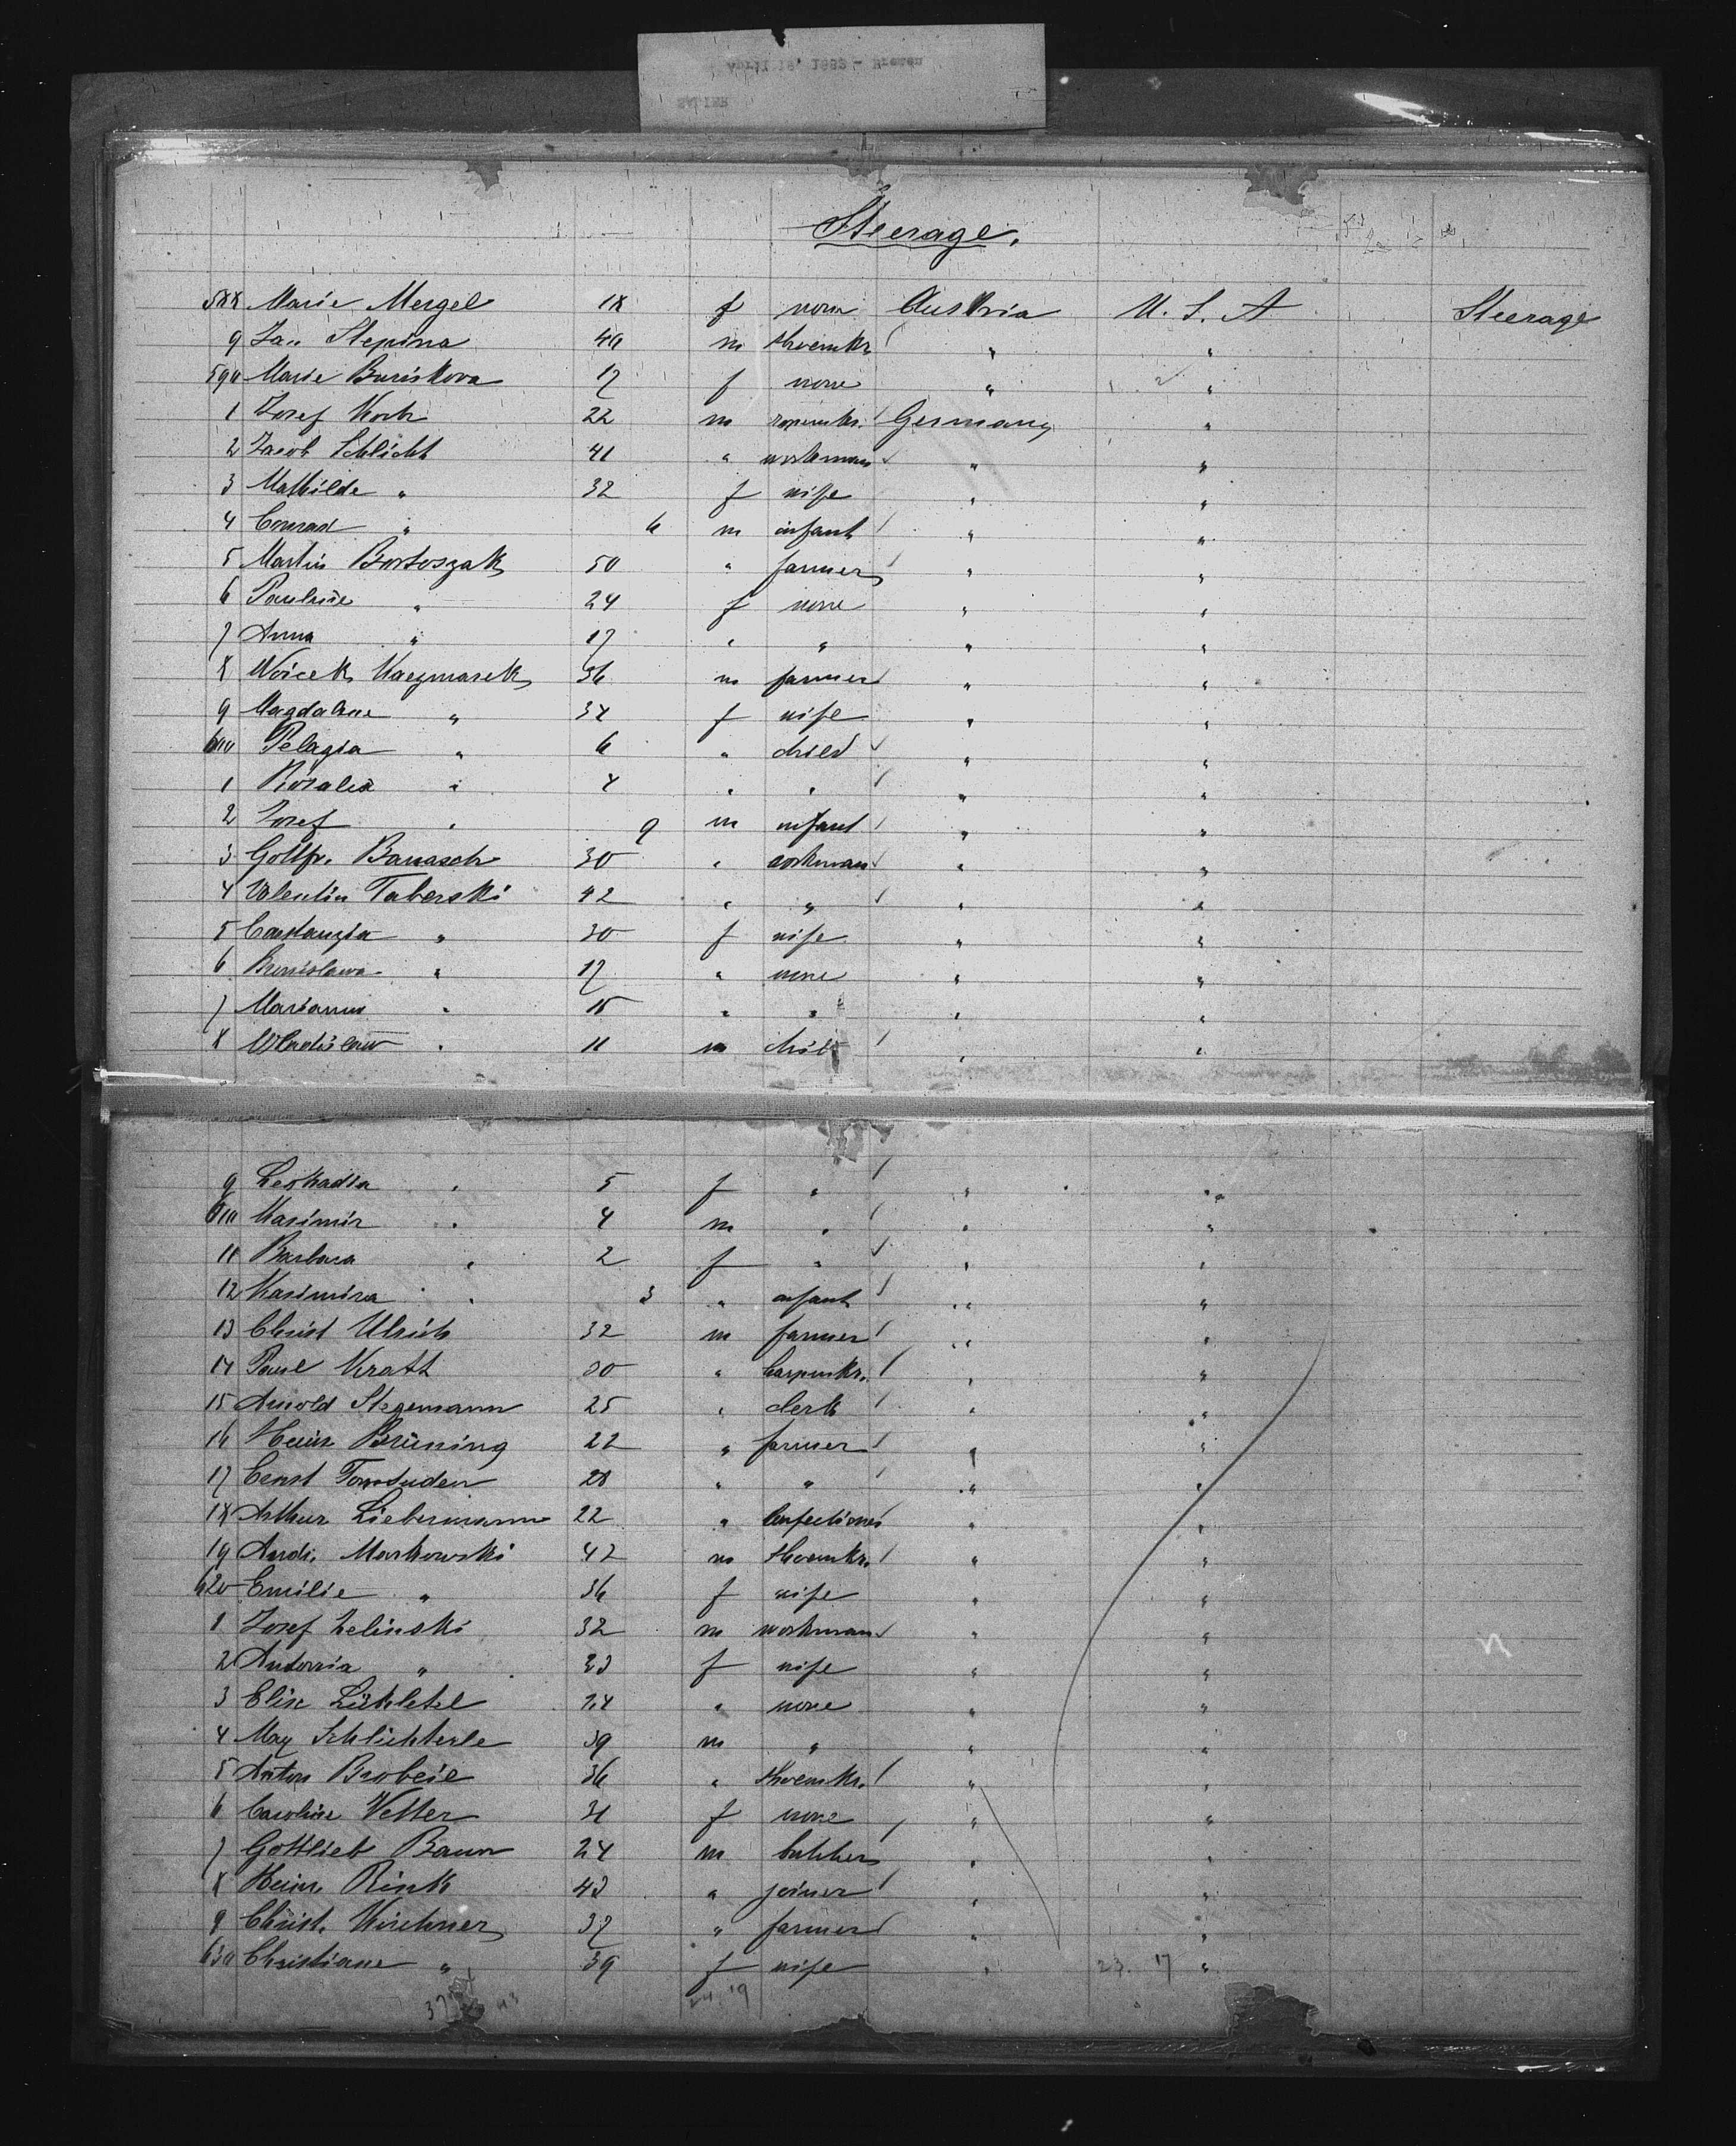 April 16, 1883 - Bremen
SALIER
Steerage.
588 Marie Mergel 18 f none Austria U. S. A Steerage
9 Jan Stepina 40 m shoemkr. " "
590 Marie Buriskova 17 f none " "
1 Josef Koch 22 m ropemkr. Germany "
2 Jacob Schlicht 41 " workman " "
3 Mathilde " 32 f wife " "
4 Conrad " 6 m infant " "
5 Martin Bortoszak 50 " farmer " "
6 Pauline " 24 f none " "
7 Anna " 17 " " " "
8 Woicek Kaczmarek 36 m farmer " "
9 Magdalene " 32 f wife " "
600 Pelagia " 6 " child " "
1 Rozalia " 4 " " " "
2 Josef " 9 m infant " "
3 Gottfr. Banasch 30 " workman " "
4 Valentin Taberski 42 " " " "
5 Constanzia " 30 f wife " "
6 Bronislawa " 17 " none " "
7 Marianna " 15 " " " "
8 Wladislaw " 11 m child " "
9 Leokadia " 5 f " " "
610 Kasimir " 4 m " " "
11 Barbara " 2 f " " "
12 Kasimira " 3 " infant " "
13 Christ Ulrich 32 m farmer " "
14 Paul Kratt 30 " Carpenkr. " "
15 Arnold Stegemann 25 " clerk " "
16 Heinr Brüning 22 " farmer " "
17 Ernst 28 " " " "
18 Arthur Liebermann 22 " Confectioner " "
19 Andr. Markowski 42 m shoemkr. " "
620 Emilie " 36 f wife " "
1 Josef Zelinski 32 m workman " "
2 Antonia " 23 f wife " "
3 Elise 24 " none " "
4 Max Schlichterle 39 m " " "
5 Anton Brobeil 36 " shoemkr. " "
6 Caroline Vetter 31 f none " "
7 Gottlieb Baum 24 m butcher " "
8 Heinr. Rink 43 " joiner " "
9 Christ. Kirchner 37 " farmer " "
630 Christiane " 39 f wife " "
23. 17
24. 19